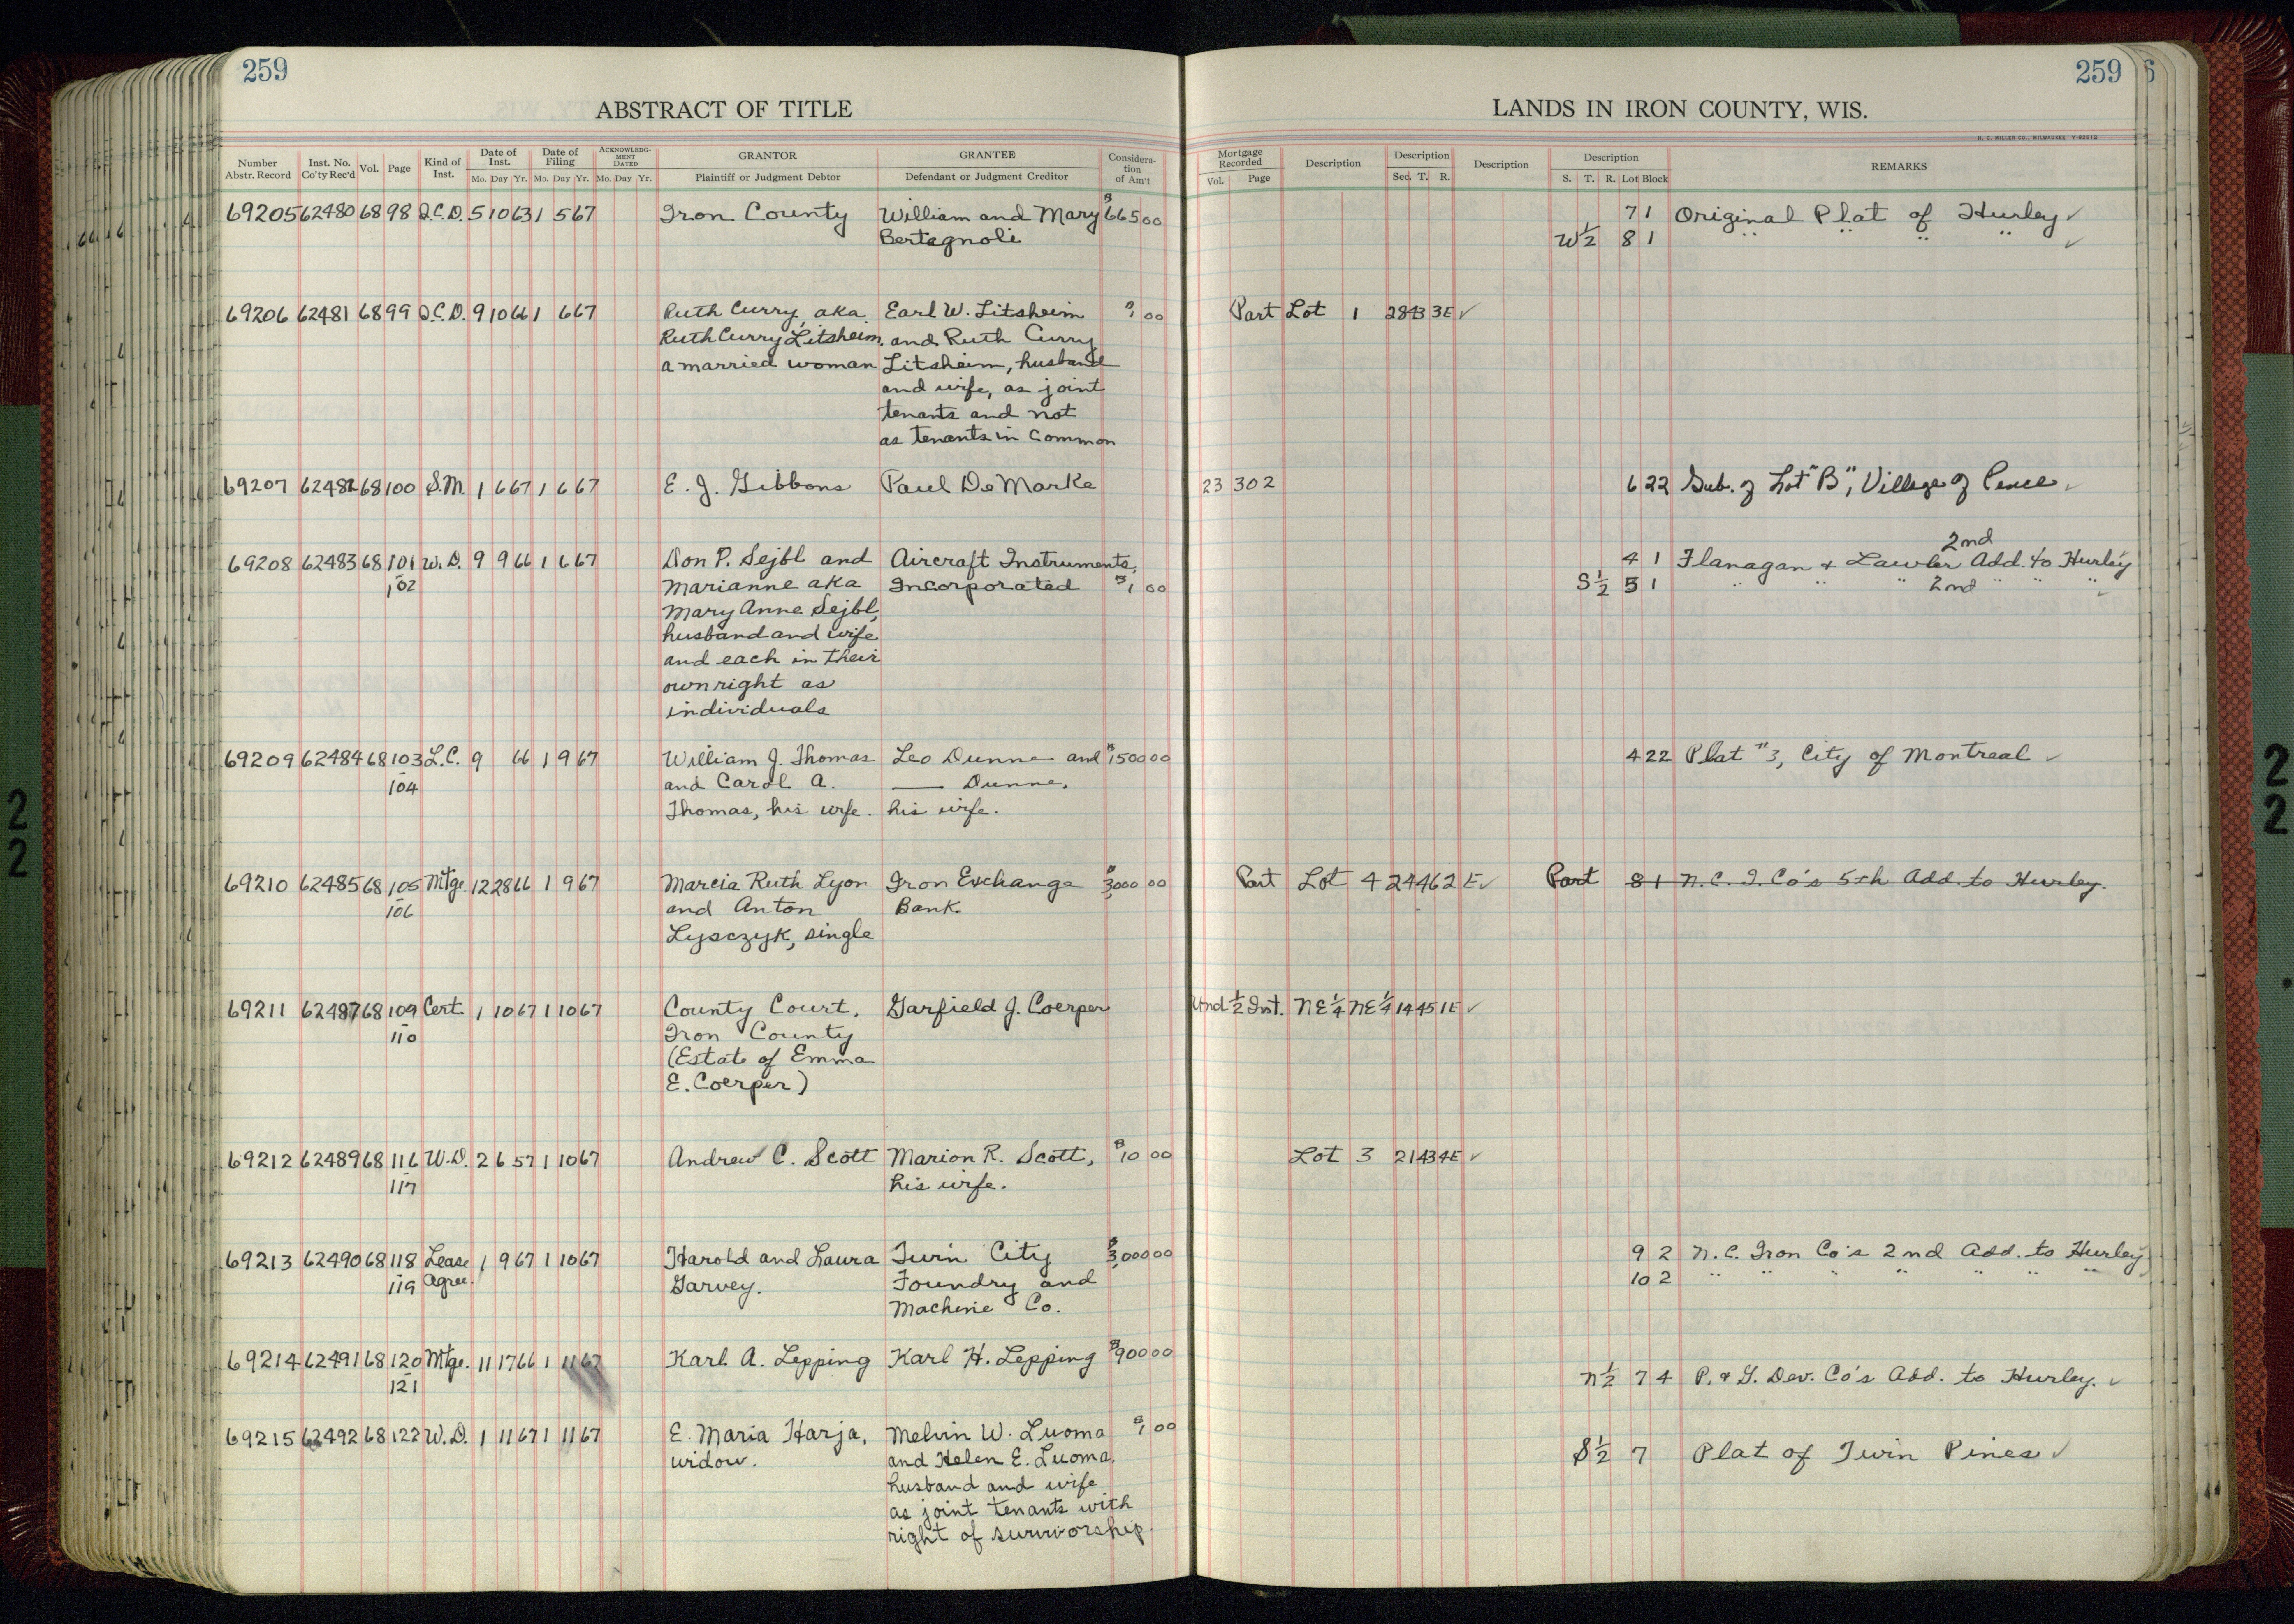 259
ABSTRACT OF TITLE
Number Abstr. Record Inst. No. Co'ty Rec'd Vol. Page Kind of Inst. Date of Inst. Mo. Day Yr. Date of Filing Mo. Day Yr. ACKNOWLEDGMENT DATED Mo. Day Yr. GRANTOR Plaintiff or Judgment Debtor GRANTEE Defendant or Judgment Creditor Consideration of Am't
69205 62480 68 98 Q.C.D. 5 10 63 1 5 67 Iron County William and Mary $665 00
Bertagnoli
69206 62481 68 99 Q.C.D. 9 10 66 1 6 67 Ruth Curry, aka Earl W. Litsheim $1 00
Ruth Curry Litsheim, and Ruth Curry
a married woman Litsheim, husband
and wife, as joint
tenants and not
as tenants in common
69207 62482 68 100 S.M. 1 6 67 1 6 67 E. J. Gibbons Paul DeMarke
69208 62483 68 101 W.D. 9 9 66 1 6 67 Don P. Sejbl and Aircraft Instruments,
-102 Marianne aka Incorporated $1 00
Mary Anne Sejbl,
husband and wife
and each in their
own right as
individuals
69209 62484 68 103 L.C. 9 66 1 9 67 William J. Thomas Leo Dunne and $1500 00
-104 and Carol A. — Dunne,
Thomas, his wife. his wife.
69210 62485 68 105 Mtge. 12 28 66 1 9 67 Marcia Ruth Lyon Iron Exchange $3,000 00
-106 and Anton Bank
Lysczyk, single
69211 62487 68 109 Cert. 1 10 67 1 10 67 County Court, Garfield J. Coerper
-110 Iron County
(Estate of Emma
E. Coerper)
69212 62489 68 116 W.D. 2 6 57 1 10 67 Andrew C. Scott Marion R. Scott, $10 00
-117 his wife.
69213 62490 68 118 Lease 1 9 67 1 10 67 Harold and Laura Twin City $3,000 00
-119 Agree. Garvey. Foundry and
Machine Co.
69214 62491 68 120 Mtge. 11 17 66 1 11 67 Karl A. Lepping Karl H. Lepping $900 00
-121
69215 62492 68 122 W.D. 1 11 67 1 11 67 E. Maria Harja, Melvin W. Luoma $1 00
widow. and Helen E. Luoma,
husband and wife
as joint tenants with
right of survivorship.
259
LANDS IN IRON COUNTY, WIS.
H. C. MILLER CO., MILWAUKEE
Mortgage Recorded Vol. Page Description Description Sec. T. R. Description Description S. T. R. Lot Block REMARKS
7 1 Original Plat of Hurley ✓
W½ 8 1 " " " " ✓
Part Lot 1 28 43 3E ✓
23 302 6 22 Sub. of Lot "B", Village of Pence ✓
2nd
4 1 Flanagan & Lawler Add. to Hurley
S½ 5 1 " " " 2nd " " " ✓
4 22 Plat #3, City of Montreal ✓
Part Lot 4 24 46 2E ✓ Part 8 1 N.C.I. Co's 5th Add. to Hurley.
Und ½ Int. NE¼ NE¼ 14 45 1E ✓
Lot 3 21 43 4E ✓
9 2 N.C. Iron Co's 2nd Add. to Hurley
10 2 " " " " " " "
N½ 7 4 P. & G. Dev. Co's Add. to Hurley. ✓
S½ 7 Plat of Twin Pines ✓
22
22